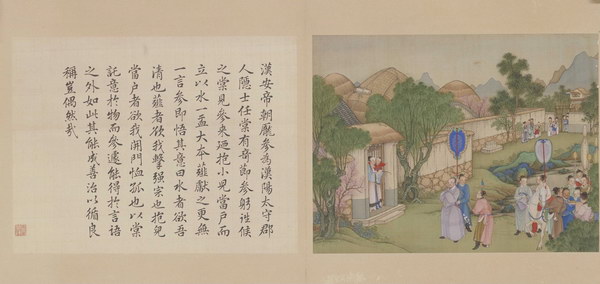 漢安帝朝龐參為漢陽太守郡
人隱士任棠有奇節參躬詣候
之棠見參來迺抱小兒當戶而
立以水一盂大本薤獻之更無
一言參即悟其意曰水者欲吾
清也薤者欲我擊强宗也抱兒
當戶者欲我開門恤孤也以棠
託意於物而參遽能得於言語
之外如此其能成善治以循良
稱豈偶然哉